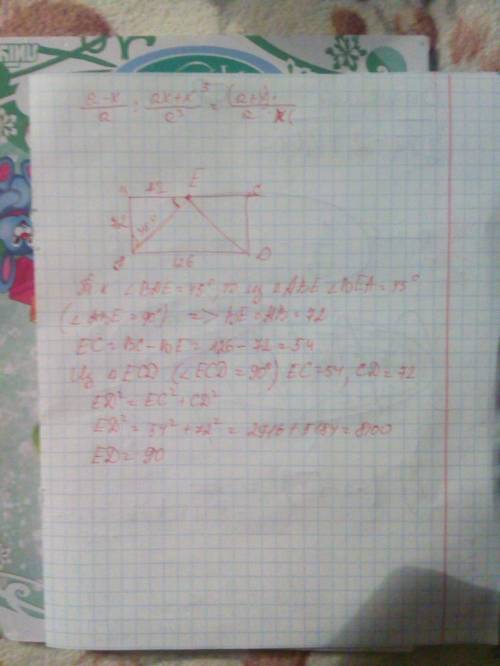 a-x/a : ax+x/a³ =
E
C
45°
126
D
Т.к ∠BAE=45°, то из △ABE ∠BEA=45°
(∠ABE=90°) => BE=AB=72
EC=BC-BE=126-72=54
Из △ECD (∠ECD=90°) EC=54, CD=72
ED²=EC²+CD²
ED²=54²+72²=2916+5184=8100
ED=90